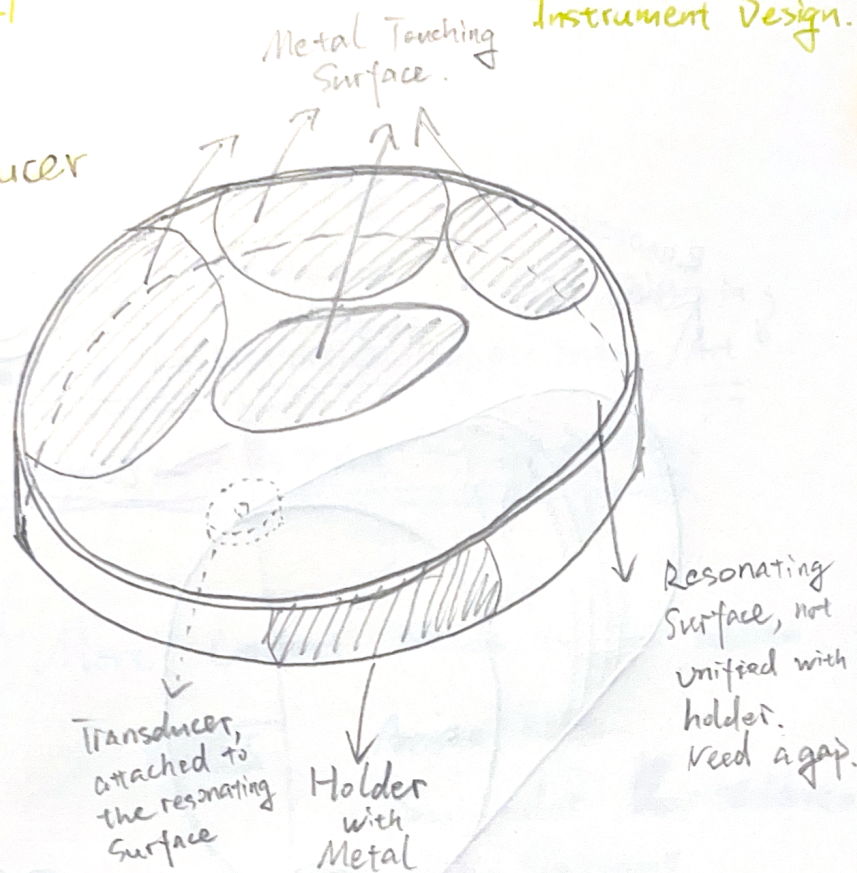 Instrument Design.
Metal Touching
Surface.
ucer
Resonating
Surface, not
unified with
holder.
Need a gap.
Transducer,
attached to
the resonating
Surface
Holder
with
Metal